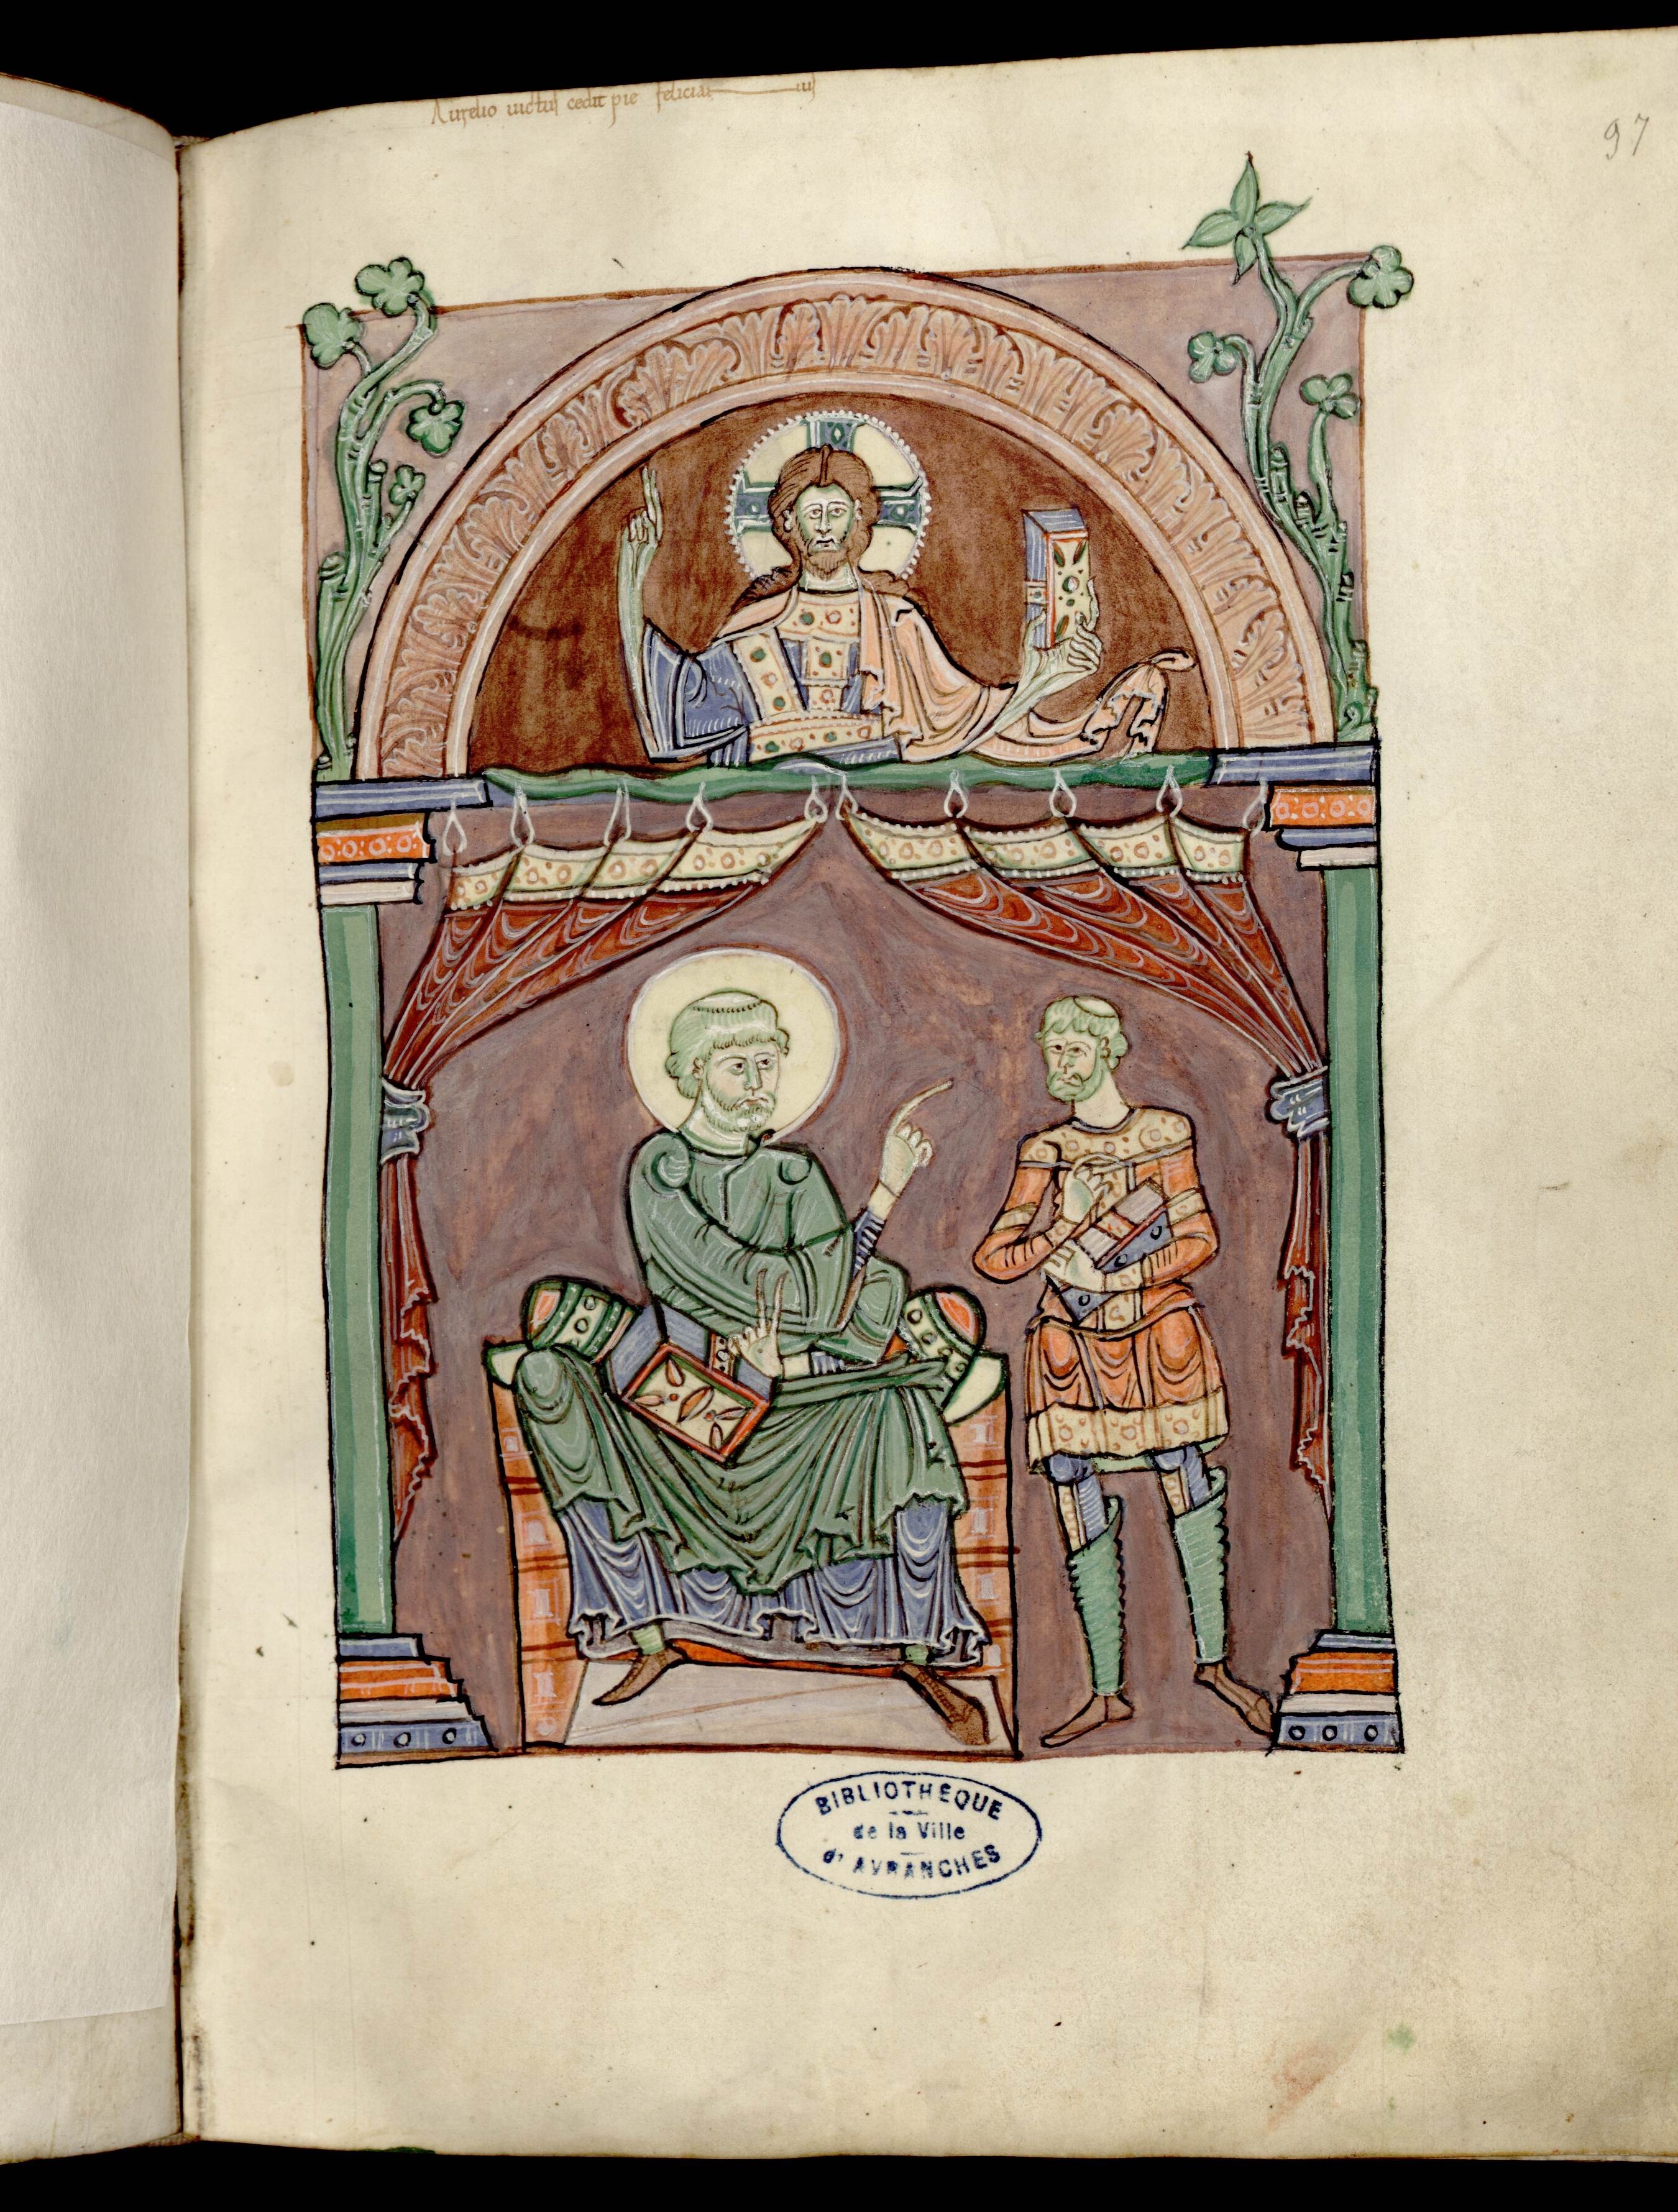 Aurelio uictus cedit pie felician———us
97
BIBLIOTHÈQUE
de la Ville
d' AVRANCHES